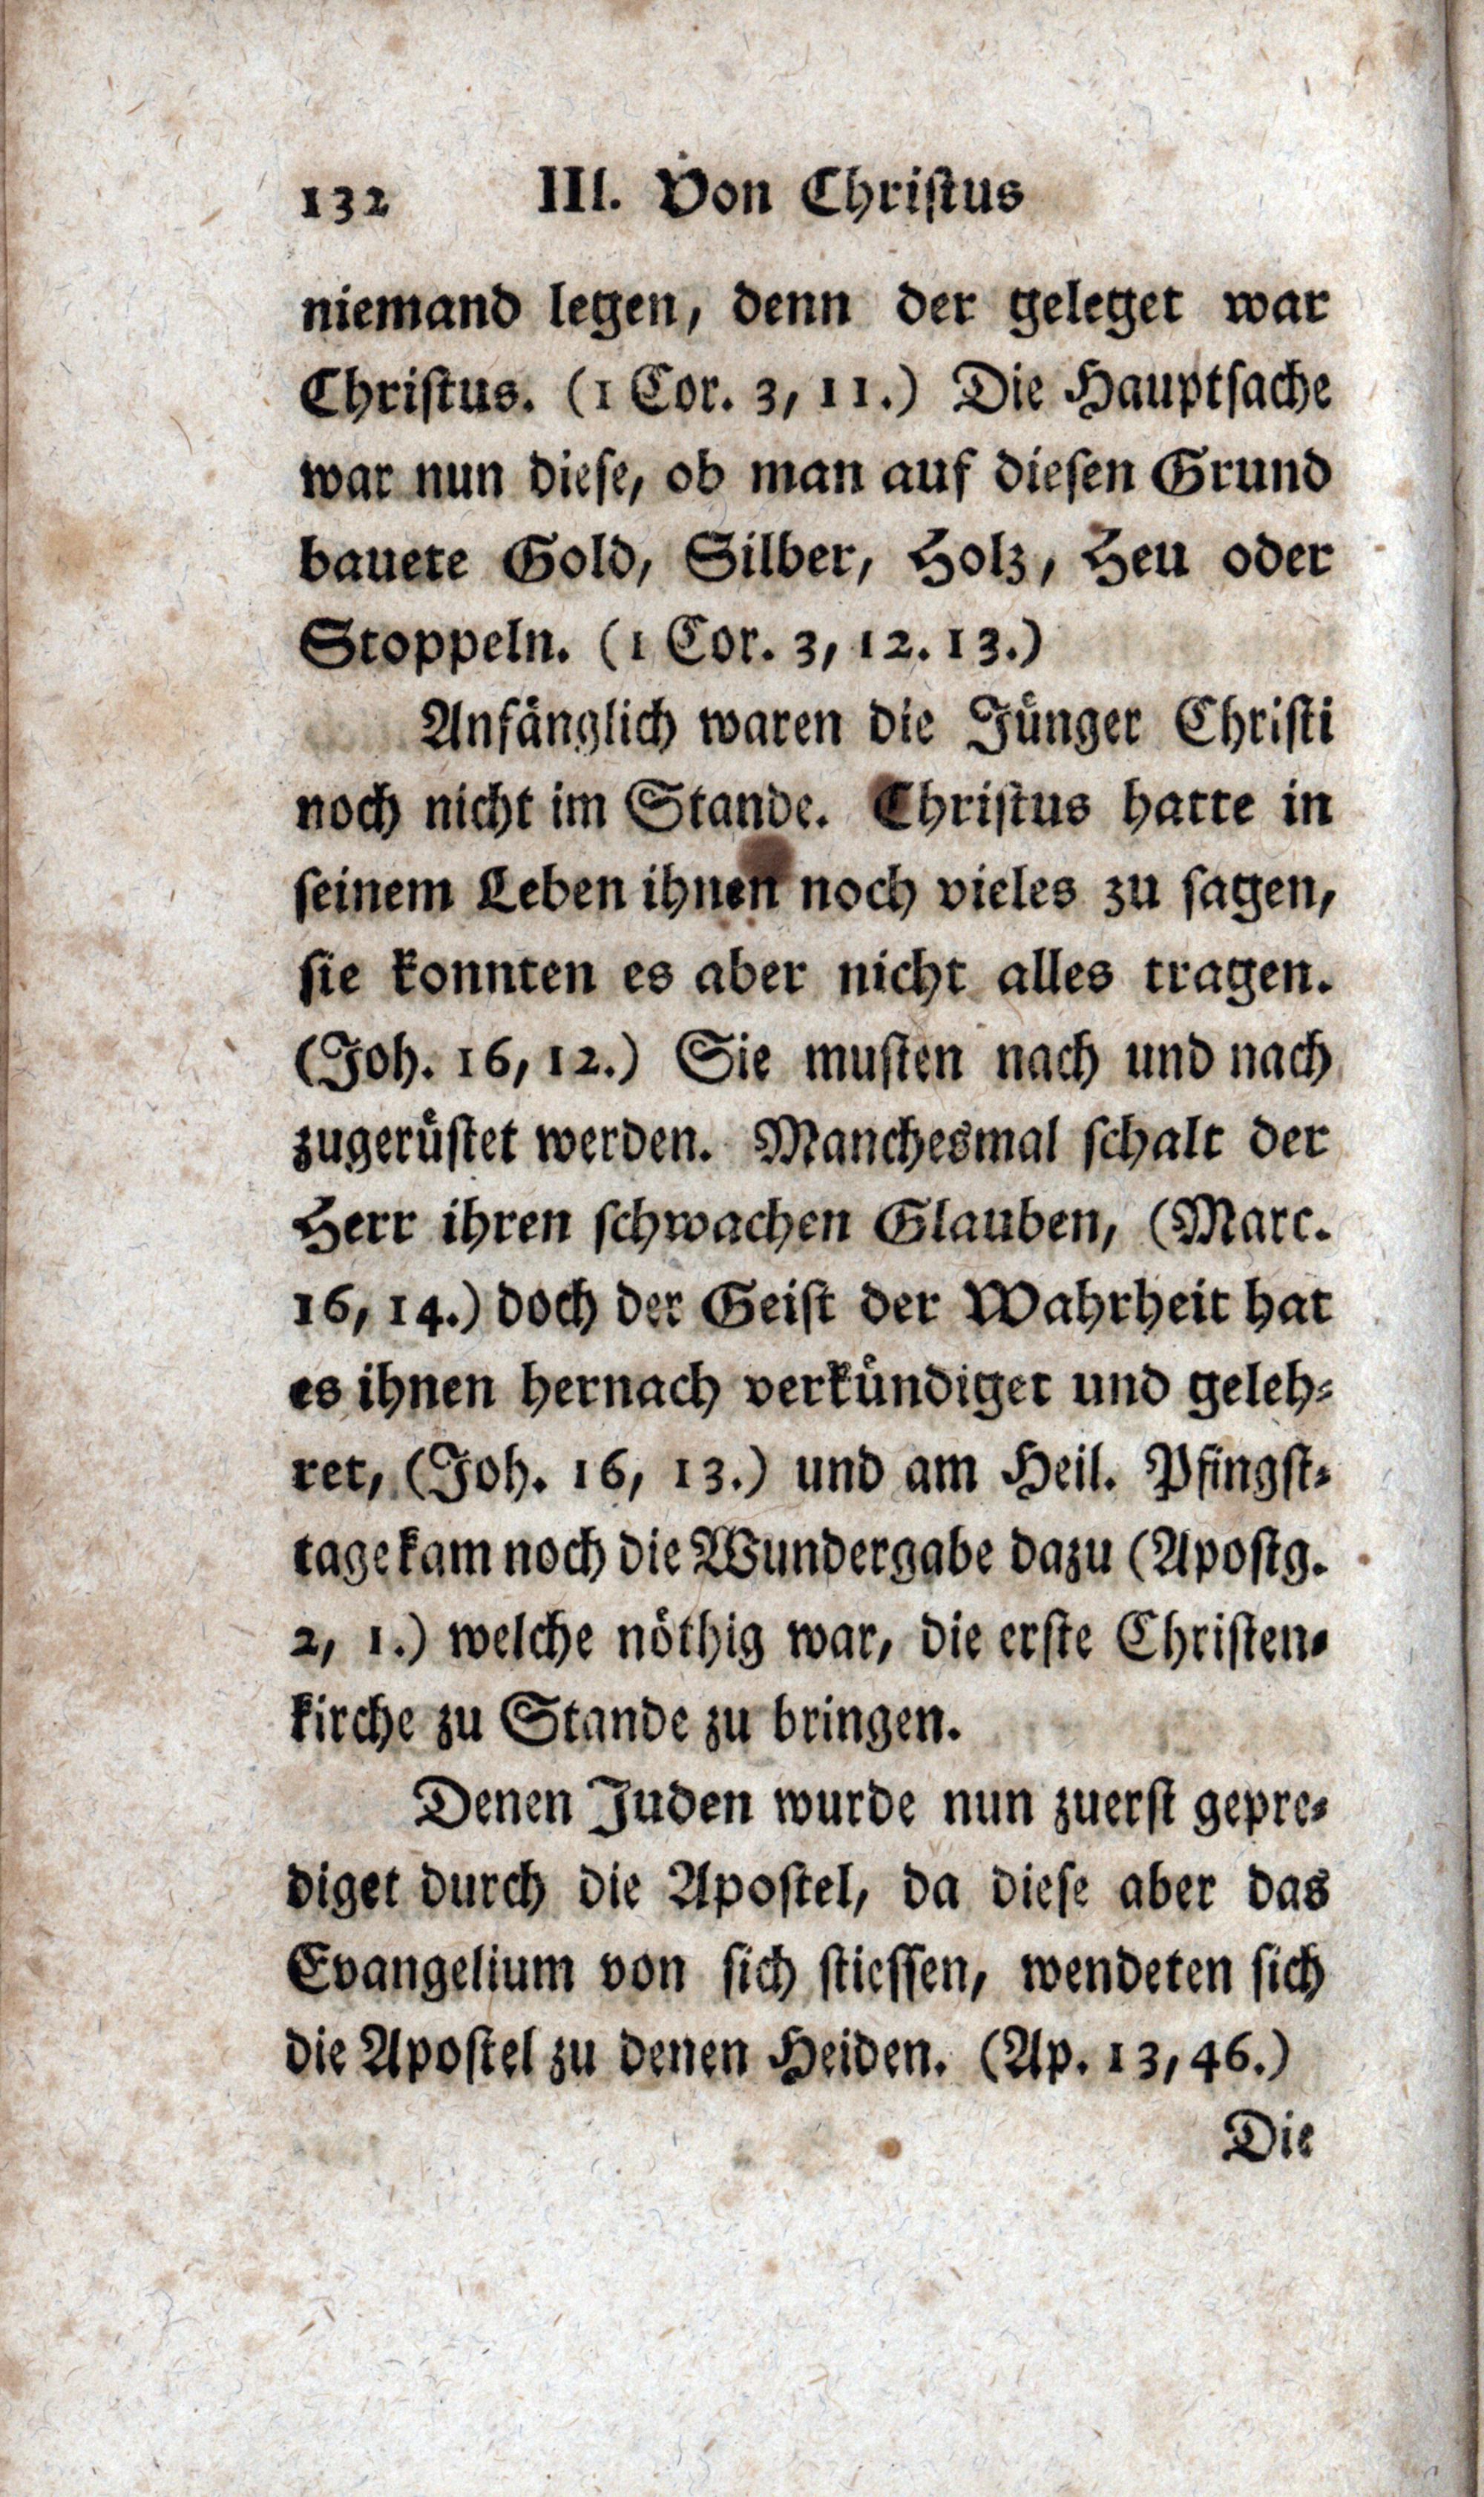 132 III. Von Christus
niemand legen, denn der geleget war
Christus. (1 Cor. 3, 11.) Die Hauptsache
war nun diese, ob man auf diesen Grund
bauete Gold, Silber, Holz, Heu oder
Stoppeln. (1 Cor. 3, 12. 13.)
Anfänglich waren die Jünger Christi
noch nicht im Stande. Christus hatte in
seinem Leben ihnen noch vieles zu sagen,
sie konnten es aber nicht alles tragen.
(Joh. 16, 12.) Sie musten nach und nach
zugerüstet werden. Manchesmal schalt der
Herr ihren schwachen Glauben, (Marc.
16, 14.) doch der Geist der Wahrheit hat
es ihnen hernach verkündiget und geleh-
ret, (Joh. 16, 13.) und am Heil. Pfingst-
tage kam noch die Wundergabe dazu (Apostg.
2, 1.) welche nöthig war, die erste Christen-
kirche zu Stande zu bringen.
Denen Juden wurde nun zuerst gepre-
diget durch die Apostel, da diese aber das
Evangelium von sich stiessen, wendeten sich
die Apostel zu denen Heiden. (Ap. 13, 46.)
Die